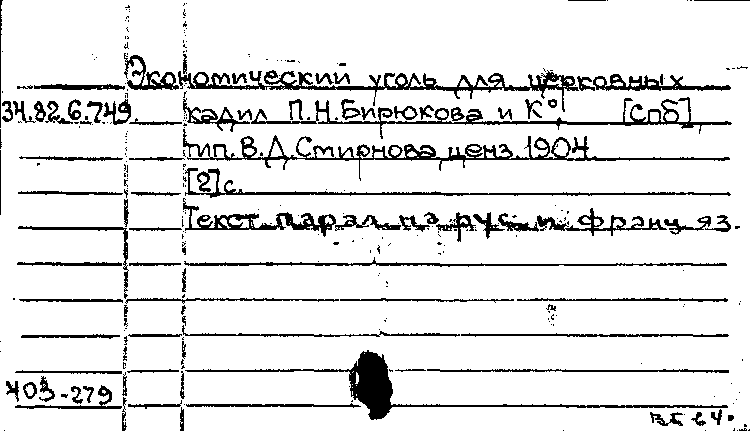 Экономический уголь для церковных
34.82.6.749. кадил П.Н.Бирюкова и К° [Спб]
тип. В.Д.Смирнова ценз. 1904.
[2]с.
Текст парал на рус и франц яз.
403-279